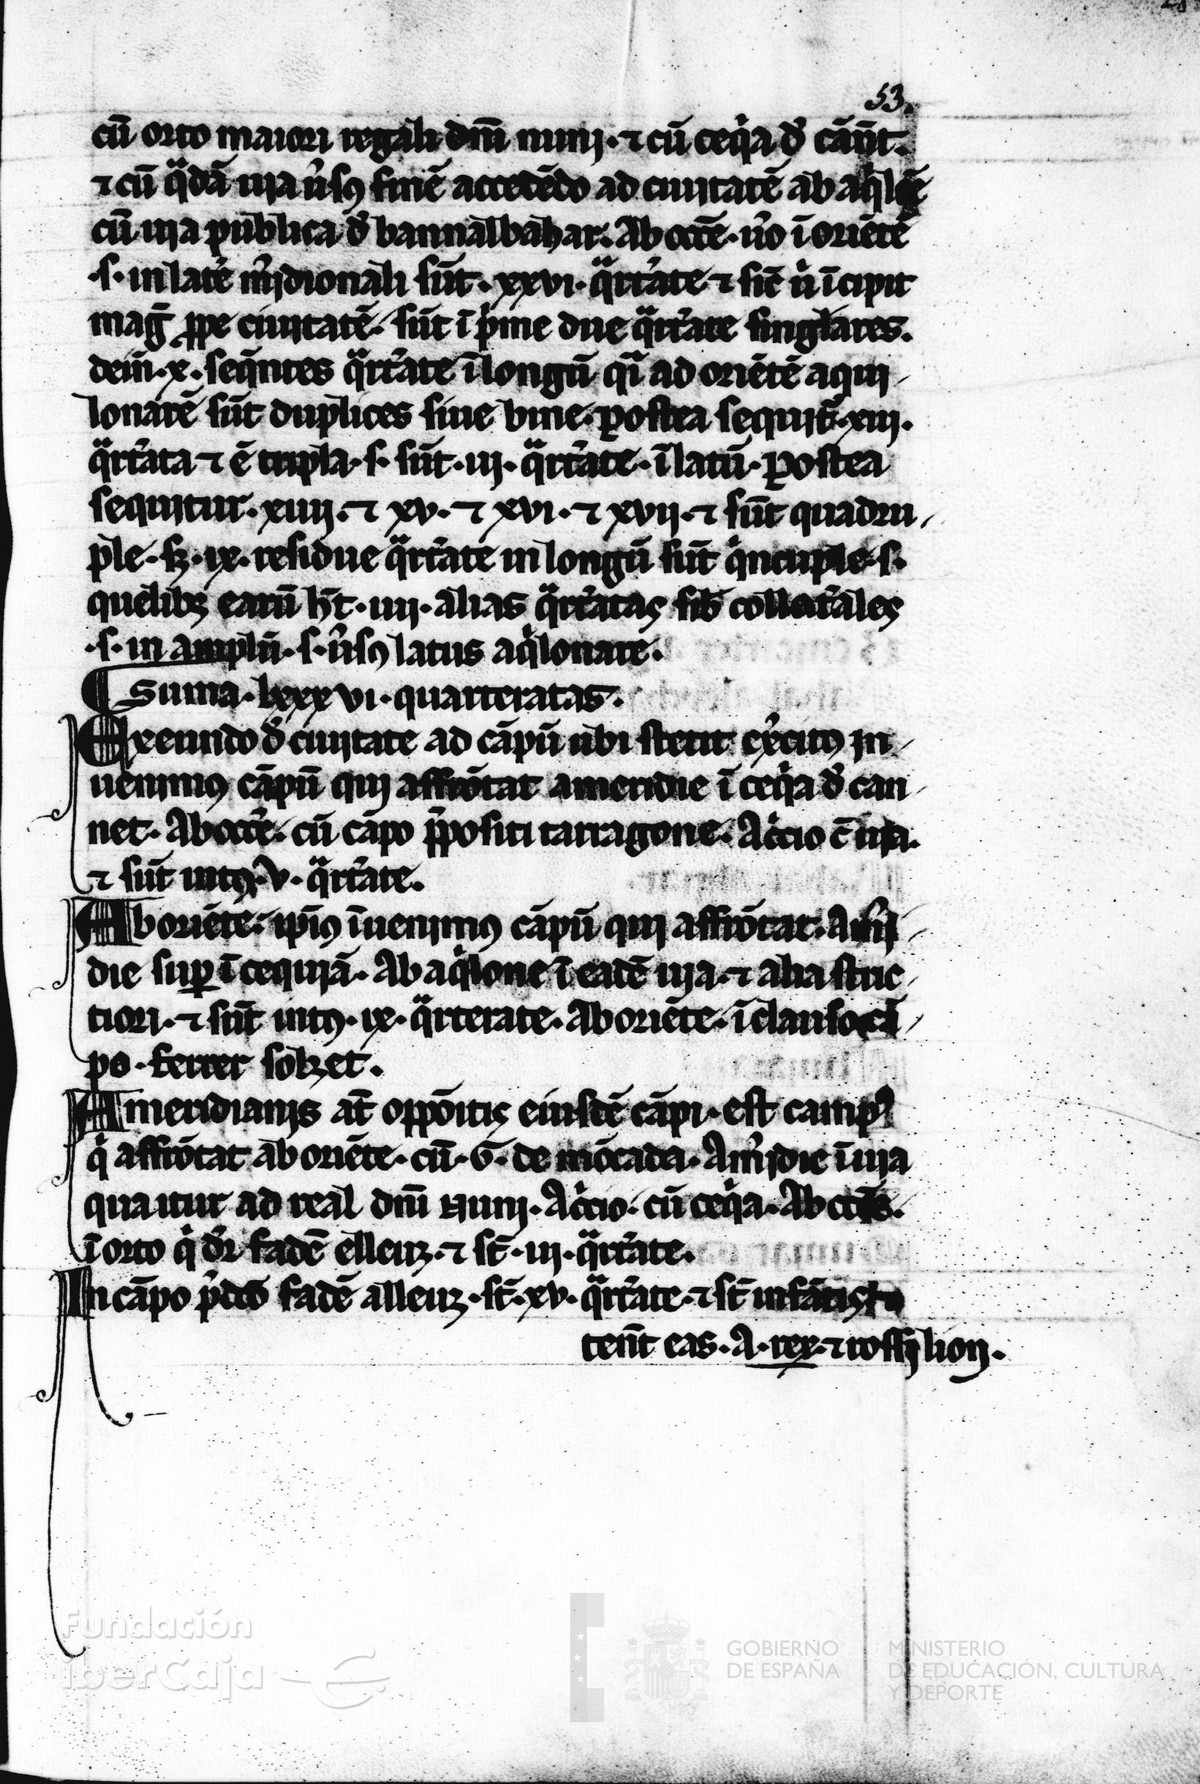 53.
cū orto maiori regali dnī nunj · ⁊ cū ceq̇a đ cānt.
⁊ cū q̈dā uia ùsꝰ finē accedēdo ad ciuitatē ab aq̇lōe
cū uia publica đ bannalbahar. Ab occē · ùo ī oriētē
·s· in latè mìdionali sūt · xxvi · q̈rt̉ate ⁊ sic̄ ù īcipit
maḡ ꝓpe ciuitatē · sūt ī p̉me due q̈rt̉ate singlares.
dein̄ · x · seq̄ntes q̈rt̉ate ī longū qī ad oriētē aqui
lonarē sūt duplices siue bine · postea sequit̄ · xiij.
q̈rt̉ata ⁊ ē tripla · s · sūt · iij · q̈rt̉ate · ī latū · postea
sequitur · xiiij · ⁊ xv · ⁊ xvi · ⁊ xvij · ⁊ sūt quadru
ple · sꝫ · ix · residue q̈rt̉ate in longū sūt q̇ncuple · s·
quēlibꝫ earū ħt · iiij · alias q̈rt̉atas sib̄ collat̉ales
·s· in amplū · s · ùsꝰ latus aq̇lonare.
Suma · lxxxvi · quarteratas.
Exeundo đ ciuitate ad cāpū ubi stetit exc̉itꝰ in
uenimꝰ cāpū qui affrōtat a meridie ī ceq̇a đ can
net · Ab occē · cū cāpo p̄positi tarragone · Aq̇cio ē uia.
⁊ sūt intꝰ · v · q̈rt̉ate.
Ab oriētē · ipīꝰ īuenimꝰ cāpū qui affrōtat · A m̉i
die suꝑ ī cequiā · Ab aq̇lone ī eadē uia · ⁊ alia stric
tiori · ⁊ sūt intꝰ · ix · q̈rterate · Ab oriēte · ī clauso cā
po · ferrer solzet.
A meridianis at̄ oppōitis eiusdē cāpi · est campꝰ
q̇ affrōtat ab oriēte · cū · G̅ · de mōcada · A m̉idie ī uia
qua itur ad real dnī Nunj · Aq̇cio · cū ceq̇a · Ab occē.
ī orto q̇ dr̄ fadē elleuz · ⁊ st̄ · iij · q̈rt̉ate.
In cāpo p̉dco fadē alleuz · st̄ · xv · q̈rt̉ate · ⁊ st̄ infātis
tenēt eas · A · rex · ⁊ rossilion.
Fundación
iberCaja
GOBIERNO
DE ESPAÑA
MINISTERIO
DE EDUCACIÓN, CULTURA
Y DEPORTE